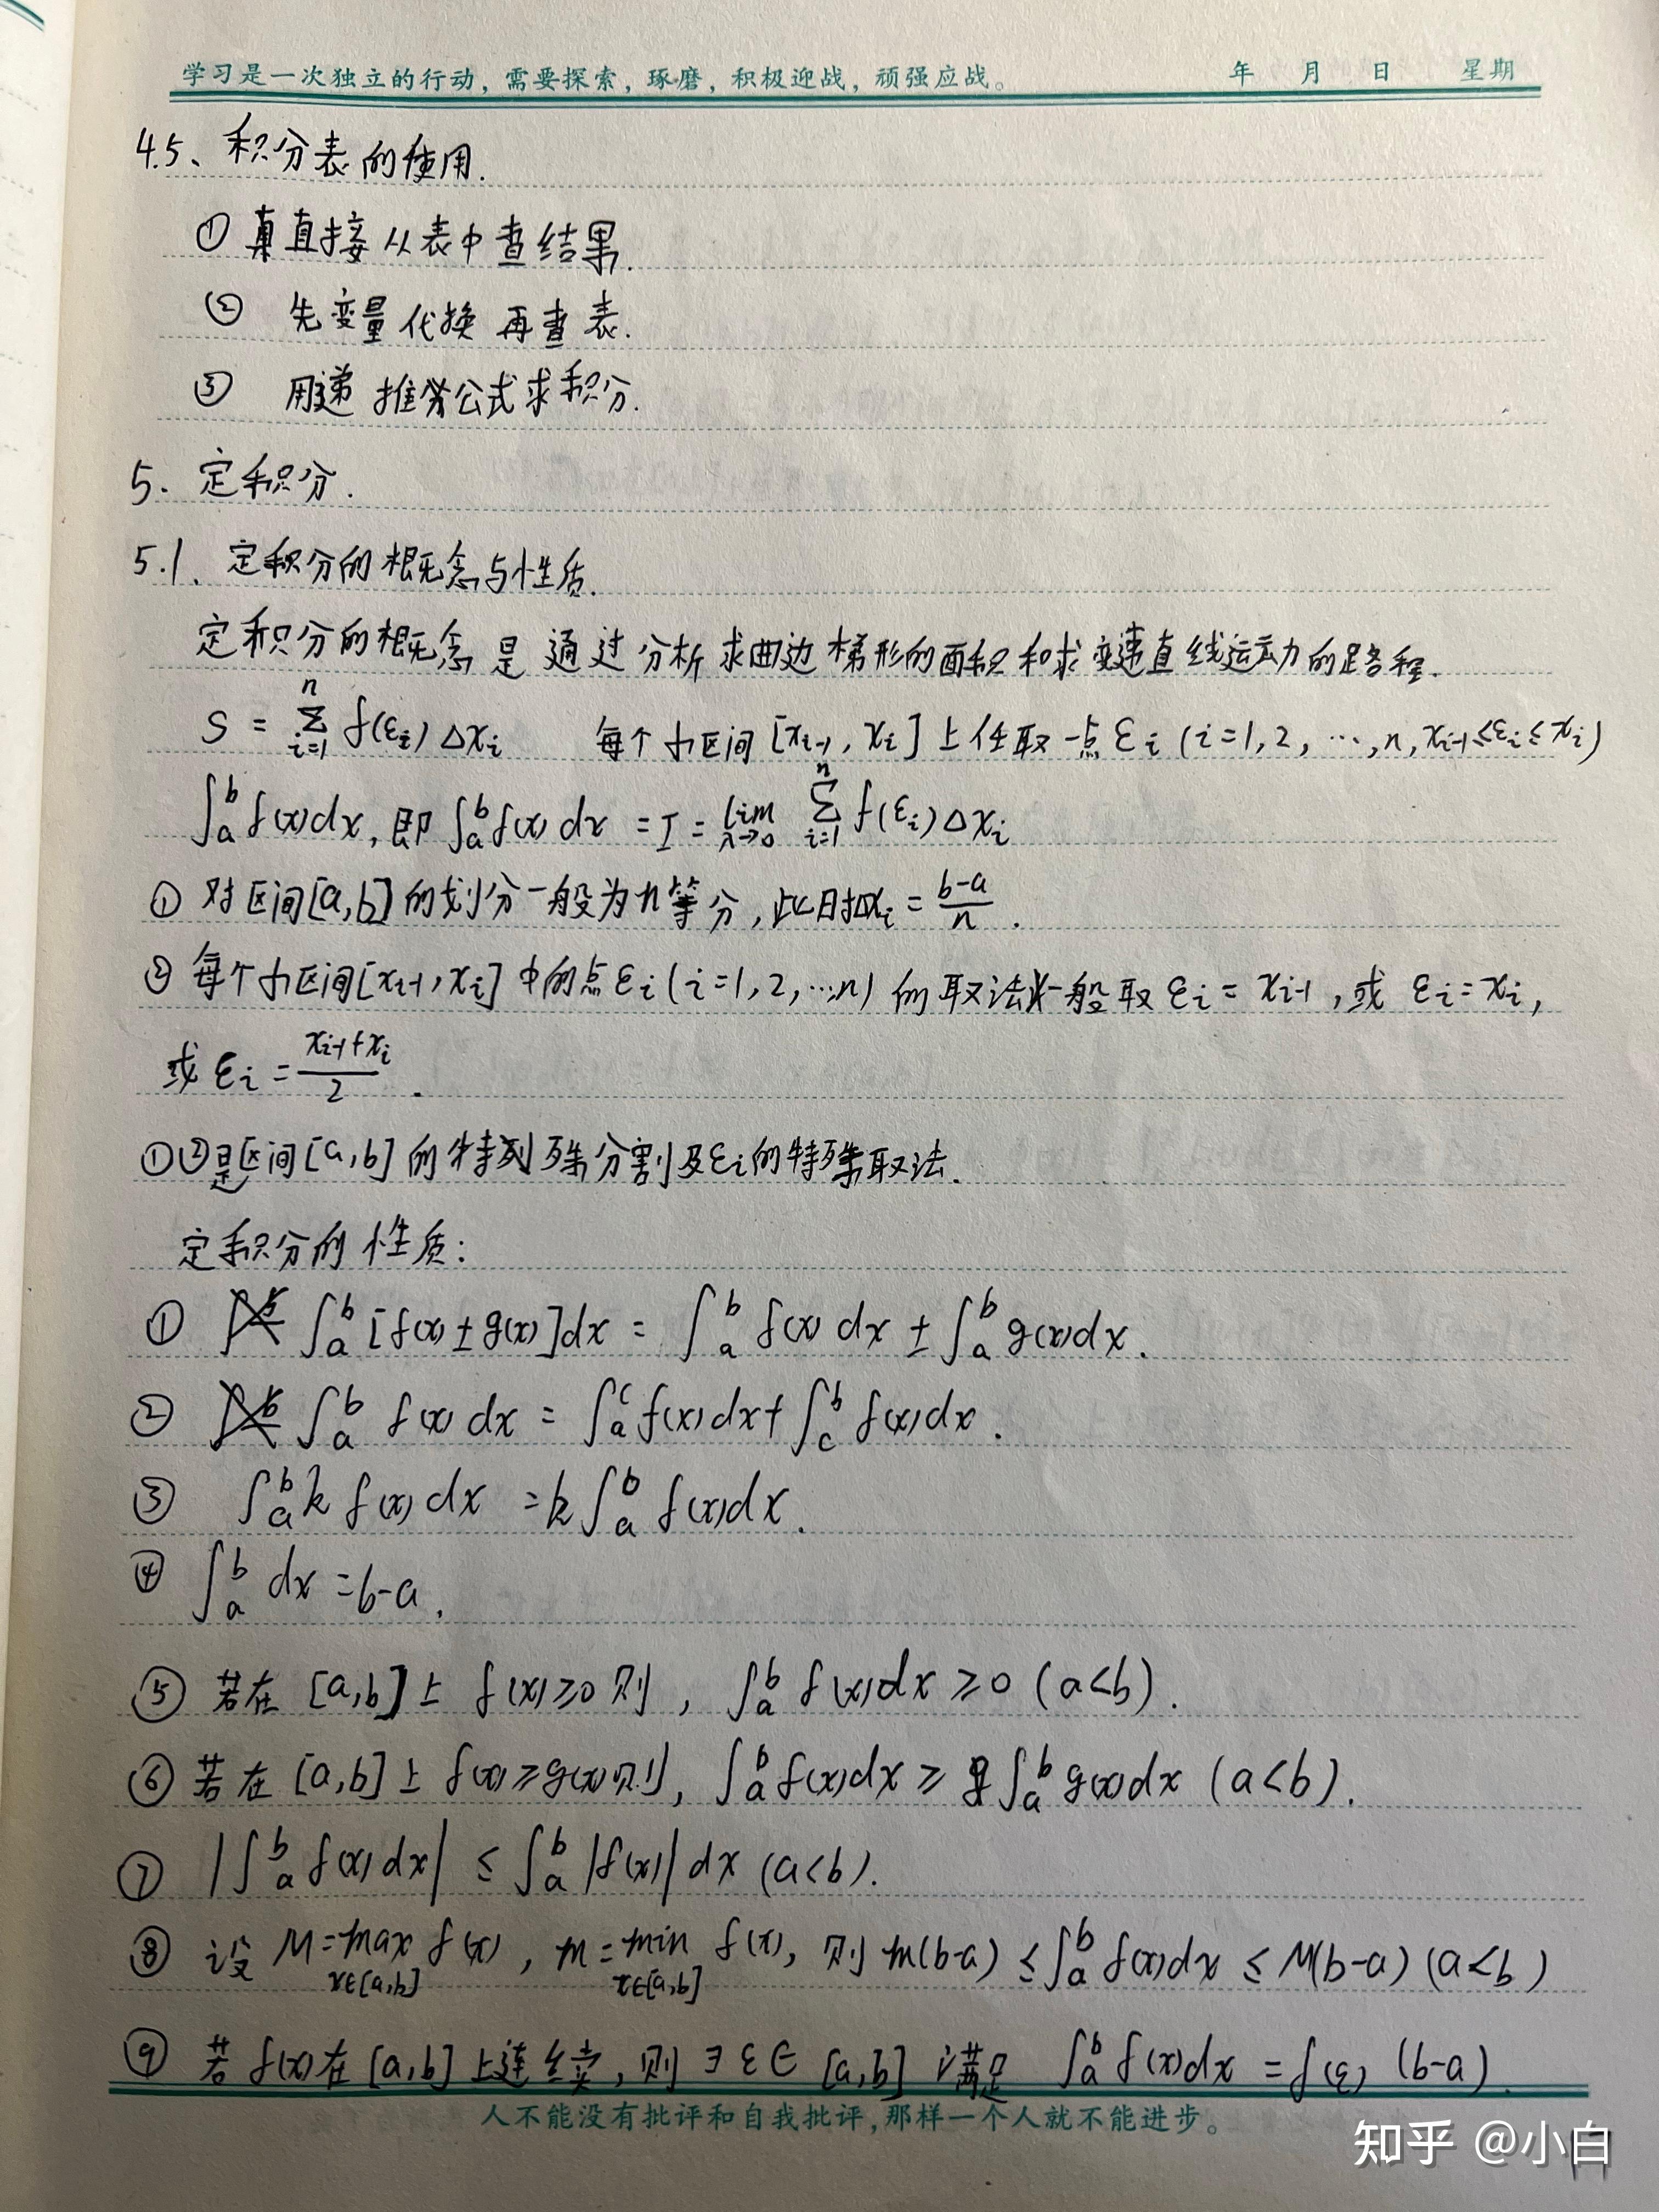 学习是一次独立的行动，需要探索，琢磨，积极迎战，顽强应战。 年 月 日 星期
4.5、积分表的使用.
① 直接从表中查结果.
② 先变量代换再查表.
③ 用递推公式求积分.
5. 定积分.
5.1. 定积分的概念与性质.
定积分的概念是通过分析求曲边梯形的面积和求变速直线运动的路程.
S = ∑_{i=1}^{n} f(ε_i)Δx_i 每个小区间[x_{i-1}, x_i]上任取一点ε_i (i=1,2,…,n, x_{i-1}≤ε_i≤x_i)
∫_a^b f(x)dx, 即 ∫_a^b f(x)dx = I = lim_{λ→0} ∑_{i=1}^{n} f(ε_i)Δx_i
① 对区间[a,b]的划分一般为n等分, 此时Δx_i = \frac{b-a}{n}.
② 每个小区间[x_{i-1}, x_i]中的点ε_i (i=1,2,…,n) 的取法一般取 ε_i = x_{i-1}, 或 ε_i = x_i,
或 ε_i = \frac{x_{i-1}+x_i}{2}.
①②是区间[a,b]的特殊分割及ε_i的特殊取法.
定积分的性质:
① ∫_a^b [f(x)±g(x)]dx = ∫_a^b f(x)dx ± ∫_a^b g(x)dx.
② ∫_a^b f(x)dx = ∫_a^c f(x)dx + ∫_c^b f(x)dx.
③ ∫_a^b k f(x)dx = k∫_a^b f(x)dx.
④ ∫_a^b dx = b-a.
⑤ 若在[a,b]上 f(x)≥0 则, ∫_a^b f(x)dx ≥ 0 (a<b).
⑥ 若在[a,b]上 f(x)≥g(x)则, ∫_a^b f(x)dx ≥ ∫_a^b g(x)dx (a<b).
⑦ |∫_a^b f(x)dx| ≤ ∫_a^b |f(x)|dx (a<b).
⑧ 设 M = max_{x∈[a,b]} f(x), m = min_{x∈[a,b]} f(x), 则 m(b-a) ≤ ∫_a^b f(x)dx ≤ M(b-a) (a<b)
⑨ 若 f(x)在[a,b]上连续, 则 ∃ ε∈[a,b] 满足 ∫_a^b f(x)dx = f(ε)(b-a).
人不能没有批评和自我批评，那样一个人就不能进步。
知乎 @小白